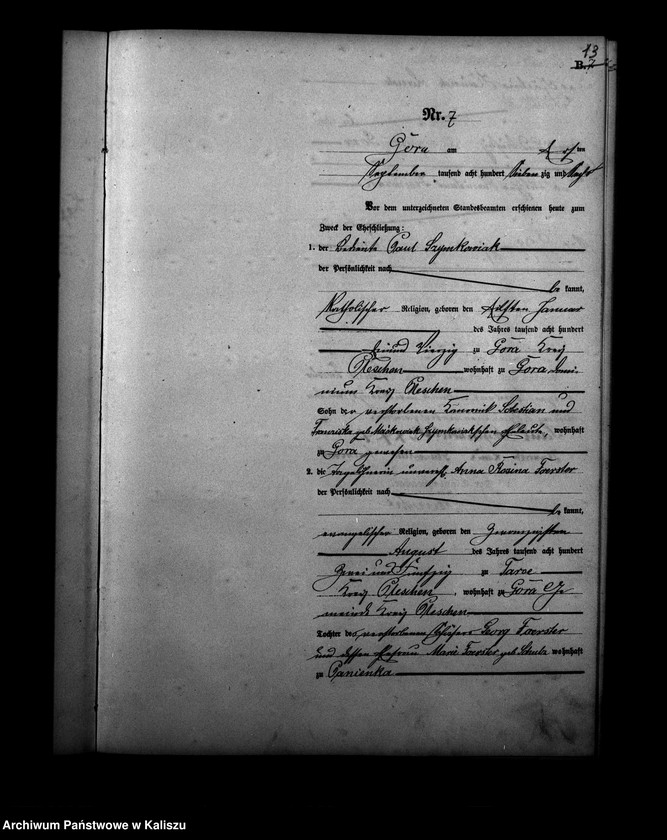 13
B. 7
Nr. 7
Góra am ten
September tausend acht hundert sieben zig und
Vor dem unterzeichneten Standesbeamten erschienen heute zum
Zweck der Eheschließung:
1. der Bediente Paul Szymkowiak
der Persönlichkeit nach
be kannt,
katholischer Religion, geboren den elften Januar
des Jahres tausend acht hundert
und vierzig zu Góra Kreis
Pleschen wohnhaft zu Góra Domi
nium Kreis Pleschen
Sohn der verstorbenen Sebstian und
Franziska geb. Szymkowiakschen Eheleute, wohnhaft
zu Góra gewesen
2. die Tagelöhnerin unvereh. Anna Rosina Foerster
der Persönlichkeit nach
be kannt,
evangelischer Religion, geboren den zwanzigsten
August des Jahres tausend acht hundert
zwei und fünfzig zu Tarce
Kreis Pleschen, wohnhaft zu Góra Ge
meinde Kreis Pleschen
Tochter des verstorbenen Schäfers Georg Foerster
und dessen Ehefrau Marie Foerster geb. Schulz wohnhaft
zu Panienka
Archiwum Państwowe w Kaliszu